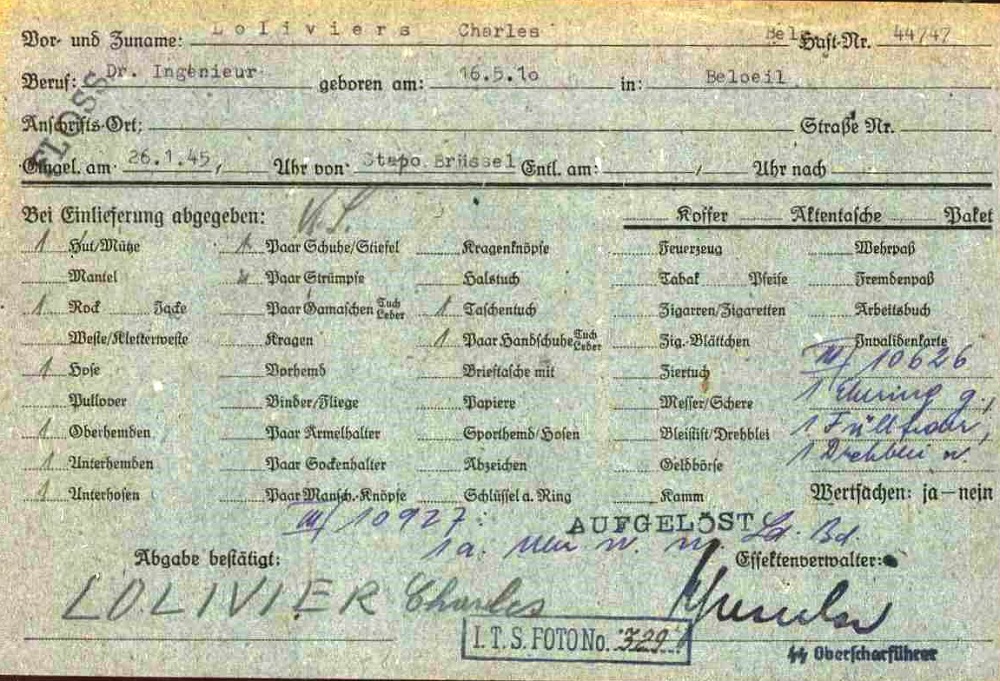 Vor- und Zuname: Loliviers Charles Bel Haft-Nr. 44747
Beruf: Dr. Ingenieur geboren am: 16.5.10 in: Beloeil
FLOSS
Anschrifts-Ort: Straße Nr.
Eingel. am 26.1.45, Uhr von: Stapo Brüssel Entl. am: Uhr nach
Bei Einlieferung abgegeben: Koffer Aktentasche Paket
1 Hut/Mütze 1 Paar Schuhe/Stiefel Kragenknöpfe Feuerzeug Wehrpaß
Mantel Paar Strümpfe Halstuch Tabak Pfeife Fremdenpaß
1 Rock Jacke Paar Gamaschen Tuch Leder 1 Taschentuch Zigarren/Zigaretten Arbeitsbuch
Weste/Kletterweste Kragen 1 Paar Handschuhe Tuch Leder Zig.-Blättchen Invalidenkarte
1 Hose Vorhemd Brieftasche mit Ziertuch III/10626
Pullover Binder/Fliege Papiere Messer/Schere 1 Ehering g.,
1 Oberhemden Paar Ärmelhalter Sporthemd/Hosen Bleistift/Drehblei 1 Füllfeder,
1 Unterhemden Paar Sockenhalter Abzeichen Geldbörse 1 Drehblei w.
1 Unterhosen Paar Mansch.-Knöpfe Schlüssel a. Ring Kamm Wertsachen: ja—nein
III/10927: AUFGELÖST
1 a. Uhr w. m. Ld. Bd.
Abgabe bestätigt: Effektenverwalter:
LOLIVIER Charles
I.T.S. FOTO No. 329
SS Oberscharführer